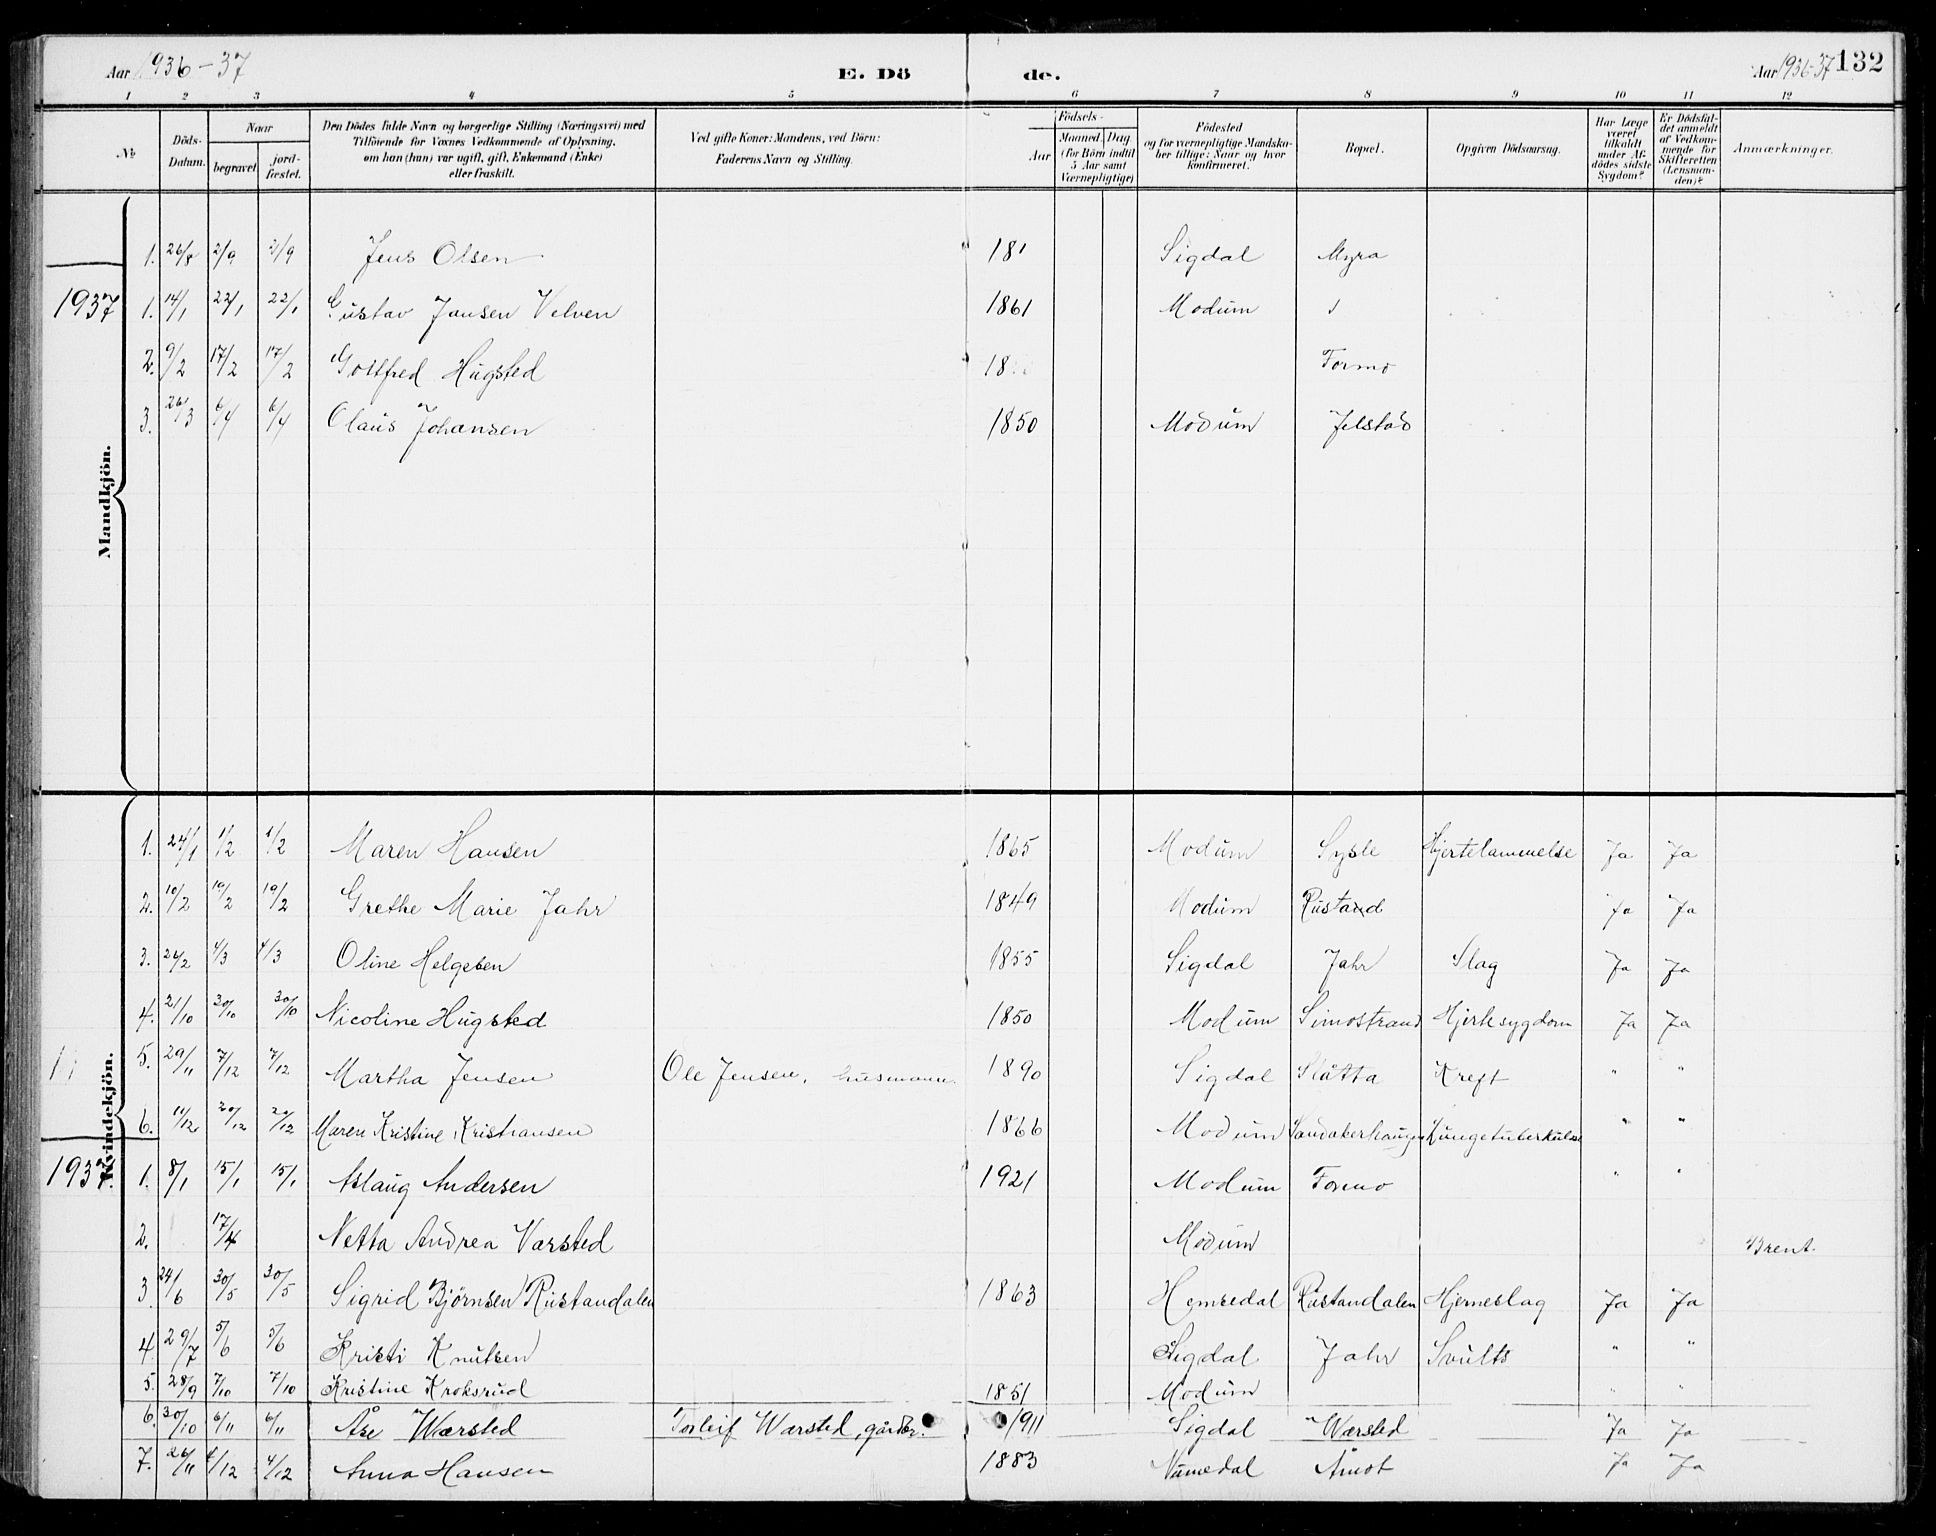 Aar 1936-37 E. Dö de. Aar 1936-37 132
1 2 3 4 5 6 7 8 9 10 11 12
No Döds-Datum. Naar begravet. jord-fæstet. Den Dödes fulde Navn og borgerlige Stilling (Næringsvei) med Tilföiende for Voxnes Vedkommende af Oplysning, om han (hun) var ugift, gift, Enkemand (Enke) eller fraskilt. Ved gifte Koner: Mandens, ved Börn: Faderens Navn og Stilling. Födsels- Aar Maaned. Dag (for Börn indtil 5 Aar samt Værnepligtige) Födested og for værnepligtige Mandskaber tillige: Naar og hvor konfirmeret. Bopæl. Opgiven Dödsaarsag. Har Læge været tilkaldt under Afdödes sidste Sygdom? Er Dödsfaldet anmeldt af Vedkommende for Skifteretten (Lensmanden)? Anmærkninger.
Mandkjön.
1. 26/8 2/9 2/9 Jens Olsen 181 Sigdal Myra
1937
1. 14/1 22/1 22/1 Gustav Jansen Velven 1861 Modum
2. 9/2 17/2 17/2 Gottfred Hugsted 18 Formo
3. 26/3 6/4 6/4 Olaus Johansen 1850 Modum Jelstad
Kvindekjön.
1. 24/1 1/2 1/2 Maren Hansen 1865 Modum Sysle Hjertelammelse Ja Ja
2. 10/2 19/2 19/2 Grethe Marie Jahr 1849 Modum Rustand Ja Ja
3. 24/2 4/3 4/3 Oline Helgesen 1855 Sigdal Jahr Slag Ja Ja
4. 21/10 30/10 30/10 Nicoline Hugsted 1850 Modum Simostrand Hjertesygdom Ja Ja
5. 29/11 7/12 7/12 Martha Jensen Ole Jensen, husmann. 1890 Sigdal Slåtta Kreft " "
6. 11/12 20/12 20/12 Maren Kristine Kristiansen 1866 Modum Sandakerhaugen Lungetuberkulose " "
1937.
1. 8/1 15/1 15/1 Aslaug Andersen 1921 Modum Formo " "
2. 17/4 Netta Andrea Varsted Modum Brent.
3. 24/6 30/5 30/5 Sigrid Bjørnsen Rustandalen 1863 Hemsedal Rustandalen Hjerneslag Ja Ja
4. 29/7 5/6 5/6 Kristi Knutsen Sigdal Jahr Svults " "
5. 28/9 7/10 7/10 Kristine Kroksrud 1851 Modum " "
6. 30/10 6/11 6/11 Åse Wærsted Torleif Wærsted, gårdbr. 1911 Sigdal Wærsted Ja Ja
7. 26/11 4/12 4/12 Anna Hansen 1883 Numedal Åmot Ja Ja